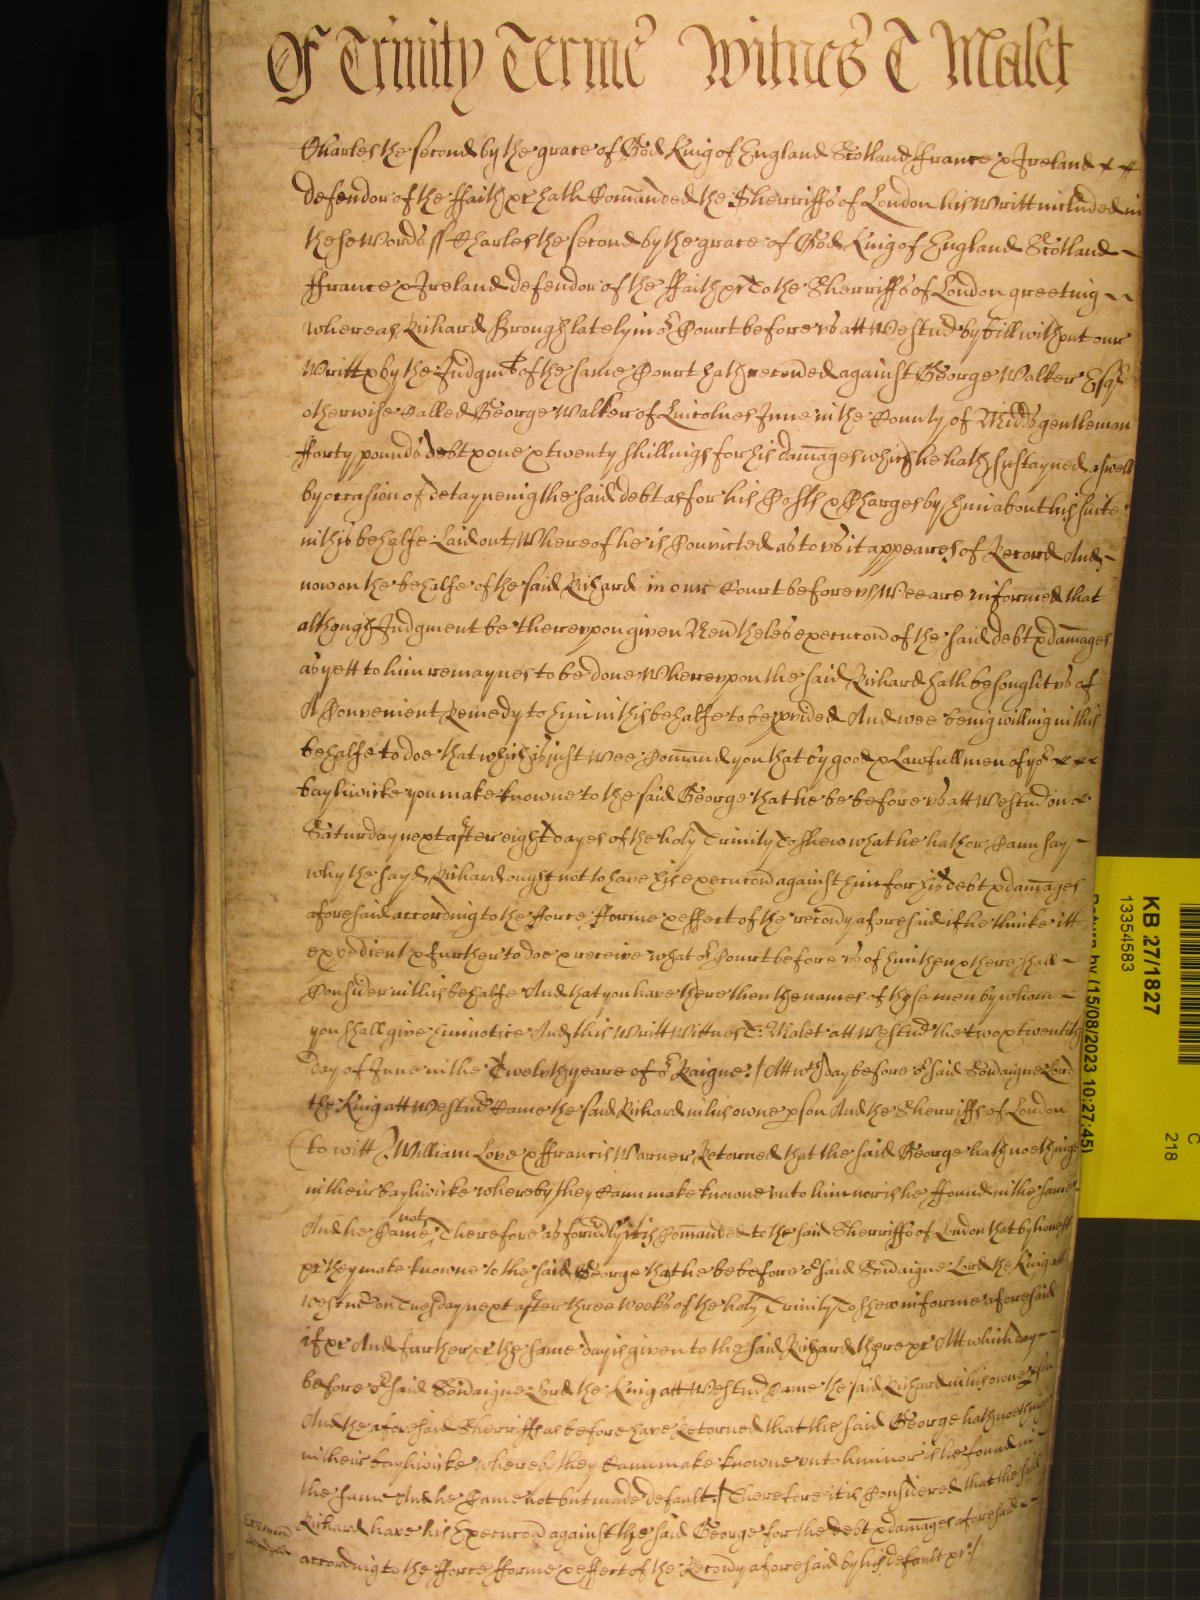 Of Trinity Terme Witnes T Malet
Charles the second by the grace of God King of England Scotland ffrance & Ireland
defendor of the ffaith &c hath Comanded the Sherriffs of London his Writt included in
these Words ss Charles the second by the grace of God King of England Scotland
ffrance & Ireland defendor of the ffaith &c To the Sherriffs of London greeting
whereas Richard Brough lately in or Court before us att Westmr by bill without our
Writt & by the Judgmt of the same Court hath recovered against George Walker Esqr
otherwise Called George Walker of Lincolnes Inne in the County of Midds gentleman
fforty pounds debt & one & twenty shillings for his damages which he hath sustayned aswell
by occasion of detayneing the said debt as for his Costs & Charges by him about his suite
in this behalfe Laid out Whereof he is Convicted as to us it appeares of Record And
now on the behalfe of the said Richard in our Court before us Wee are informed that
although Judgment be thereupon given Nevertheles execucon of the said debt & damages
as yett to him remaynes to be done Whereupon the said Richard hath besought us of
A Convenient Remedy to him in this behalfe to be pvided And wee being willing in this
behalfe to doe that which is just Wee Comand you that by good & Lawfull men of yor
bayliwicke you make knowne to the said George that he be before us att Westmr on
Saturday next after eight dayes of the holy Trinity To shew what he hath or Cann say
why the sayd Richard ought not to have his execucon against him for his debt & damages
aforesaid according to the fforce fforme & effect of the recovy aforesaid if he thinke itt
expedient & further to doe & receive what or Court before us of him then & there shall
Consider in this behalfe And that you have there then the names of those men by whom
you shall give him notice And this Writt Wittnes T: Malet att Westmr the two & twentith
day of June in the Twelvth yeare of or Raigne:/ Att wch day before or said Sovaigne Lord
the King att Westmr Came the said Richard in his owne pson And the Sherriffs of London
(to witt) William Love & ffrancis Warner Retorned that the said George hath noethinge
in their bayliwicke whereby they Cann make knowne unto him nor is he ffound in the same
And he Came not Therefore as formly it is Comanded to the said Sherriffs of London that by honest
&c they make knowne to the said George that he be before or said Sovaigne Lord the King att
Westmr on Tuesday next after three Weeks of the holy Trinity To shew in forme aforesaid
if &c And further &c the same day is given to the said Richard there &c Att which day
before or said Sovaigne Lord the King att Westmr Came the said Richard in his owne pson
And the aforesaid Sherriffs as before have Retorned that the said George hath noething
in their bayliwicke whereby they Cann make knowne unto him nor is he found in
the same And he Came not but made default:/ Therefore it is Considered that the said
Richard have his Execucon against the said George for the debt & damages aforesaid
according to the fforce fforme & effect of the Recovy aforesaid by his default &c:/
KB 27/1827
13354583
Return by (15/08/2023 10:27:45)
C
218